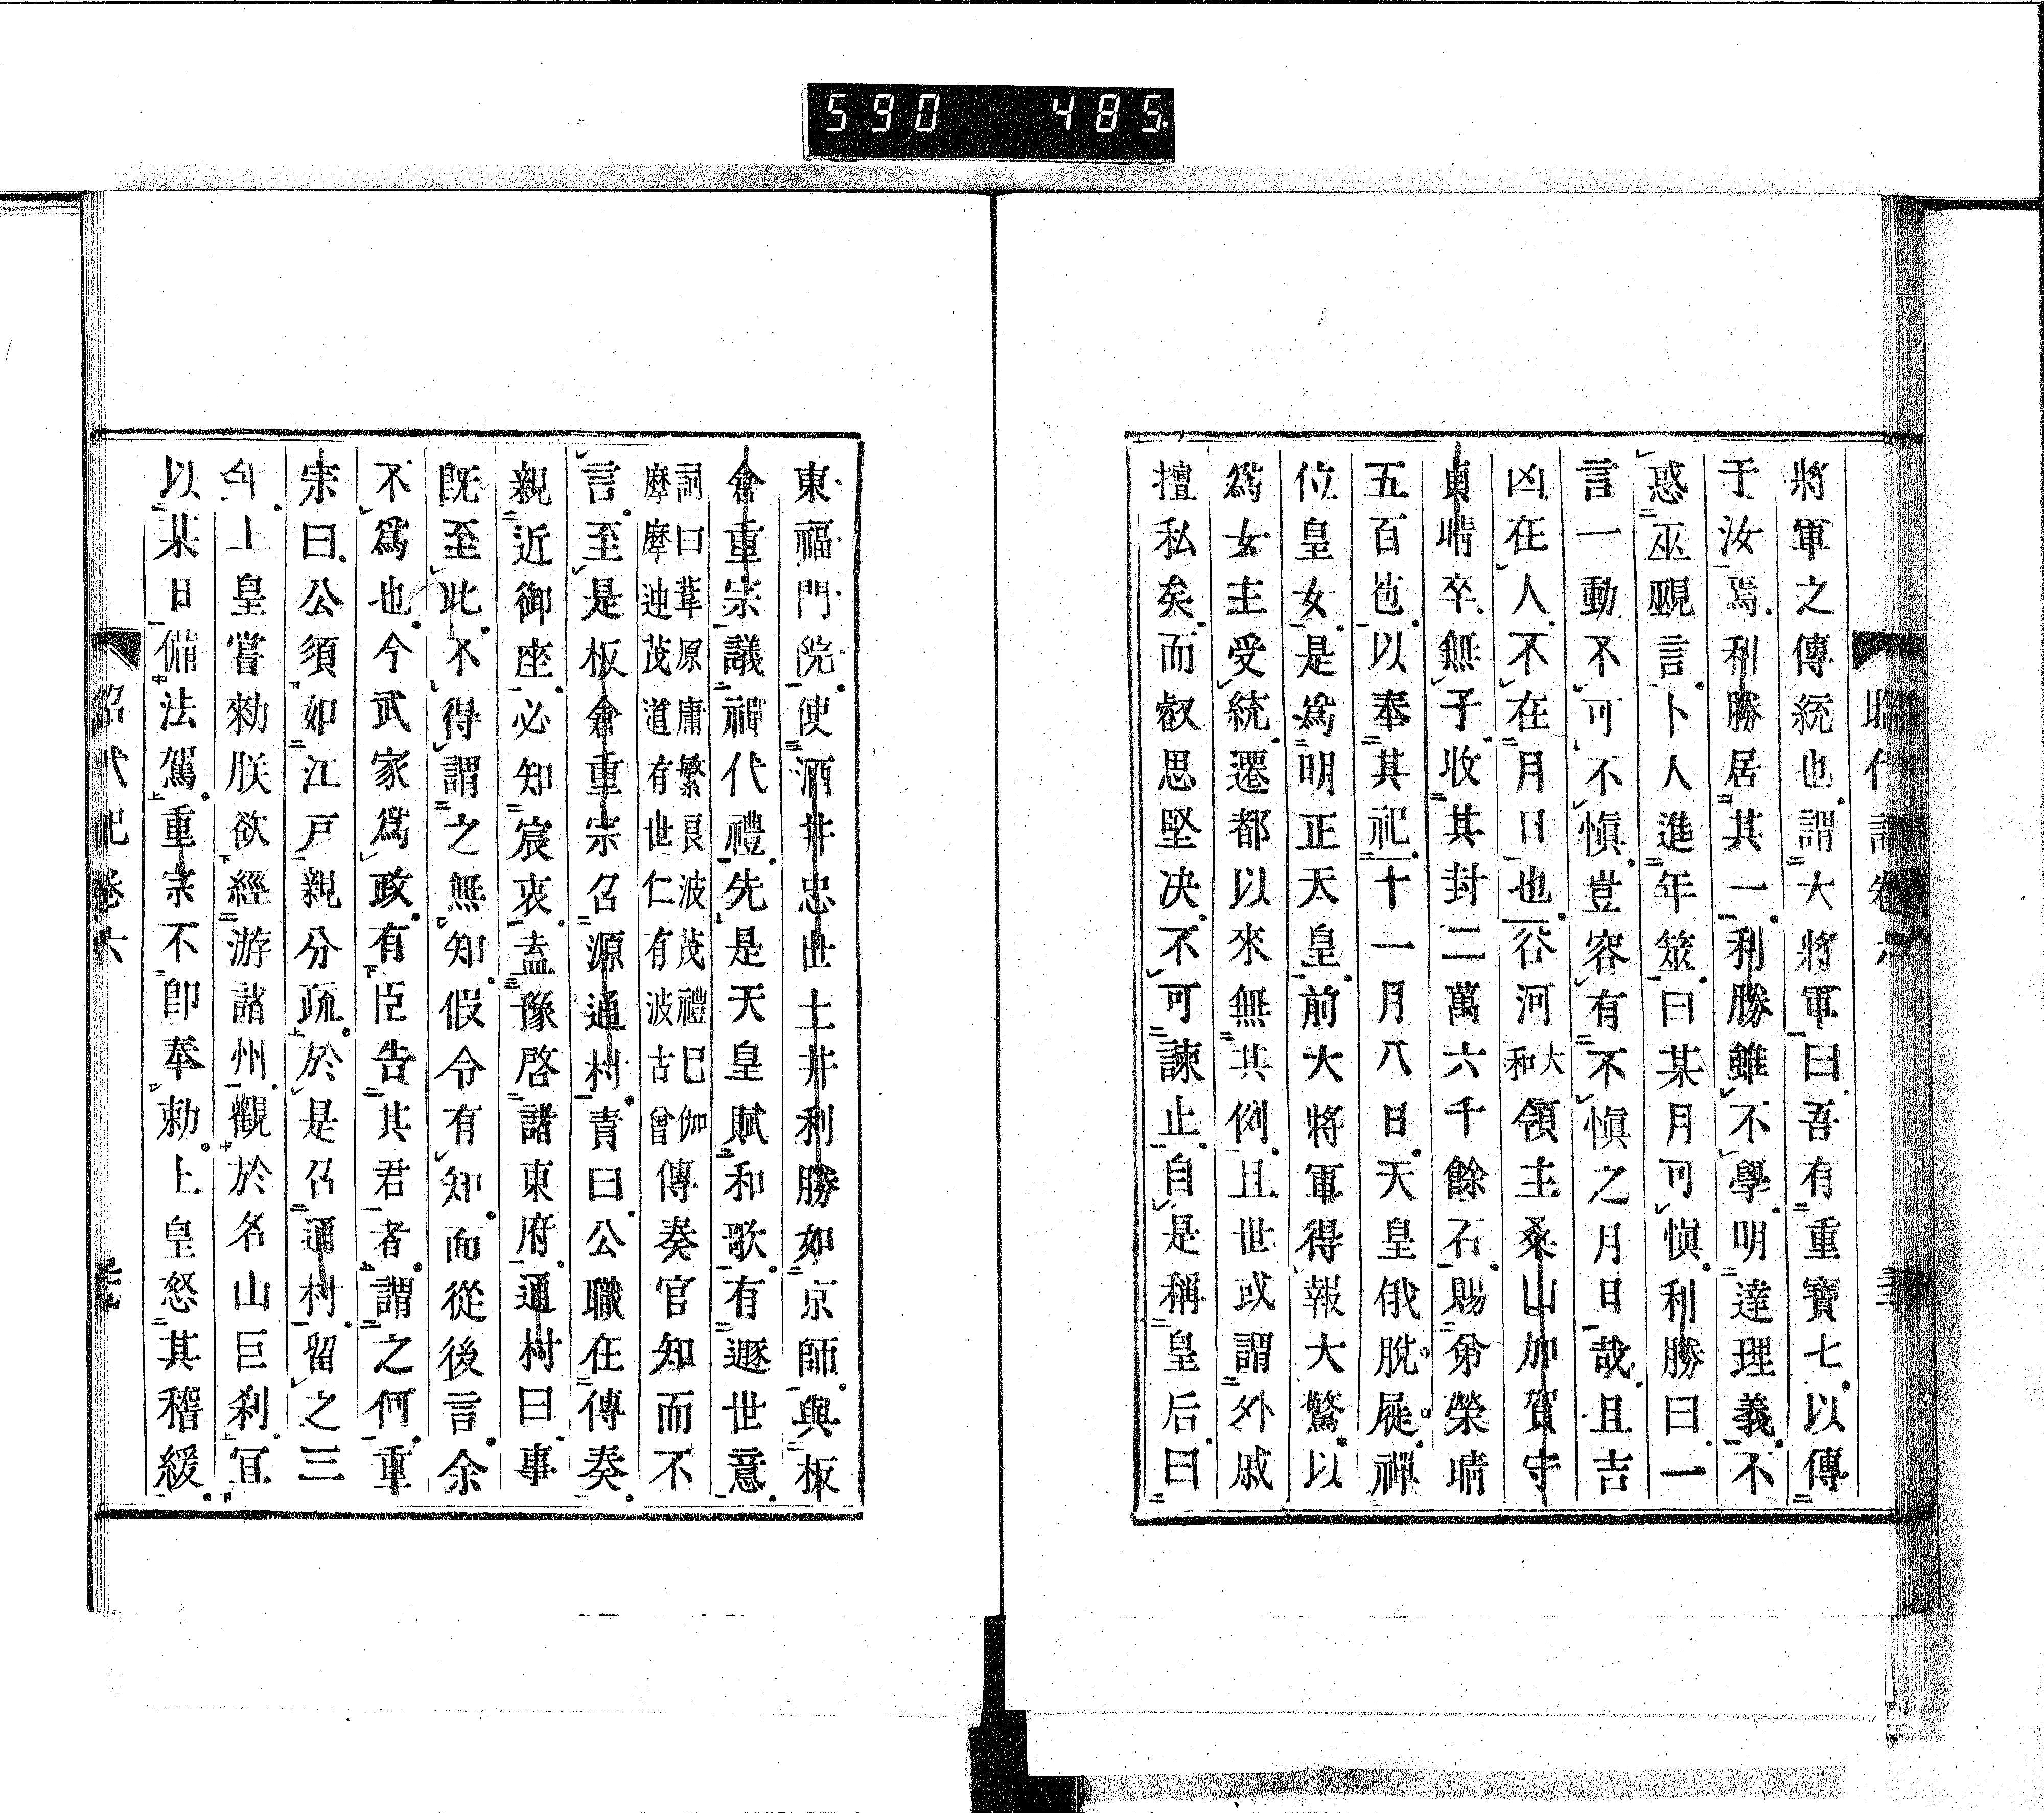 590 485
將軍之傳統也謂大將軍曰吾有重寶七以傳
于汝焉利勝居其一利勝雖不學明達理義不
惑巫覡言卜人進年筮曰某月可愼利勝曰一
言一動不可不愼豈容有不愼之月日哉且吉
凶在人不在月日也谷河大和領主桑山加賀守
貞晴卒無子收其封二萬六千餘石賜弟榮晴
五百苞以奉其祀十一月八日天皇俄脫屣禪
位皇女是爲明正天皇前大將軍得報大驚以
爲女主受統遷都以來無其例且世或謂外戚
擅私矣而叡思堅决不可諫止自是稱皇后曰
東福門院使酒井忠世土井利勝如京師與板
倉重宗議禪代禮先是天皇賦和歌有遯世意
詞曰葦原庸繁艮波茂禮巳伽
摩摩迚茂道有世仁有波古曾傳奏官知而不
言至是板倉重宗召源通村責曰公職在傳奏
親近御座必知宸衷盍豫啓諸東府通村曰事
旣至此不得謂之無知假令有知面從後言余
不爲也今武家爲政有臣告其君者謂之何重
宗曰公須如江戸親分疏於是召通村留之三
年上皇嘗勅朕欲經游諸州觀於名山巨刹宜
以某日備法駕重宗不卽奉勅上皇怒其稽緩
昭代記卷六